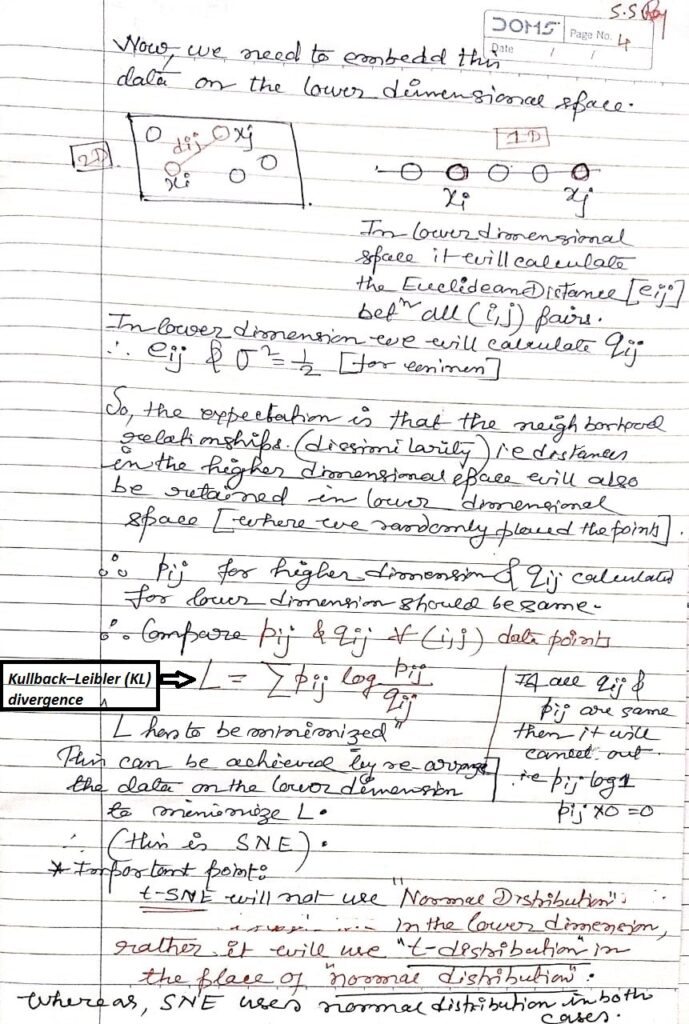 S.S Roy
DOMS
Page No. 4
Date / /
Now, we need to embedd this
data on the lower dimensional space.
2D
dij xj
xi
1D
xi xj
In lower dimensional
space it will calculate
the Euclidean Distance [eij]
betn all (i,j) pairs.
In lower dimension we will calculate qij
∴ eij & σ² = 1/2
So, the expectation is that the neighborhood
relationships. (dissimilarity) ie distances
in the higher dimensional space will also
be retained in lower dimensional
space [where we randomly placed the points].
∴ pij for higher dimension & qij calculated
for lower dimension should be same.
∴ Compare pij & qij ∀ (i,j) data points
Kullback–Leibler (KL)
divergence
L = Σ pij log pij/qij
L has to be minimized"
This can be achieved by re-arrange
the data on the lower dimension
to minimize L.
∴ (this is SNE).
If all qij &
pij are same
then it will
cancel out.
i.e pij log1
pij x0 =0
* Important point:
t-SNE will not use "Normal Distribution"
in the lower dimension,
rather it will use "t-distribution" in
the place of "normal distribution".
whereas, SNE uses normal distribution in both
cases.